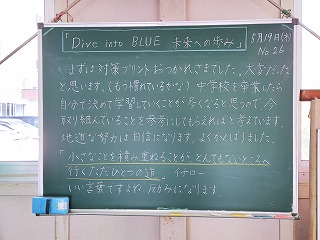 「Dive into BLUE 未来への歩み」
5月19日(木)
No.26
まずは対策プリントおつかれさまでした。大変だった
と思います。(もう慣れているかな) 中学校を卒業したら
自分で決めて学習していくことが多くなると思うので、今
取り組んでいることを参考にしてもらえればと考えています。
地道な努力は自信になります。よくがんばりました。
「小さなことを積み重ねることが とんでもないところへ
行くただひとつの道」 イチロー
いい言葉ですよね。励みになります。